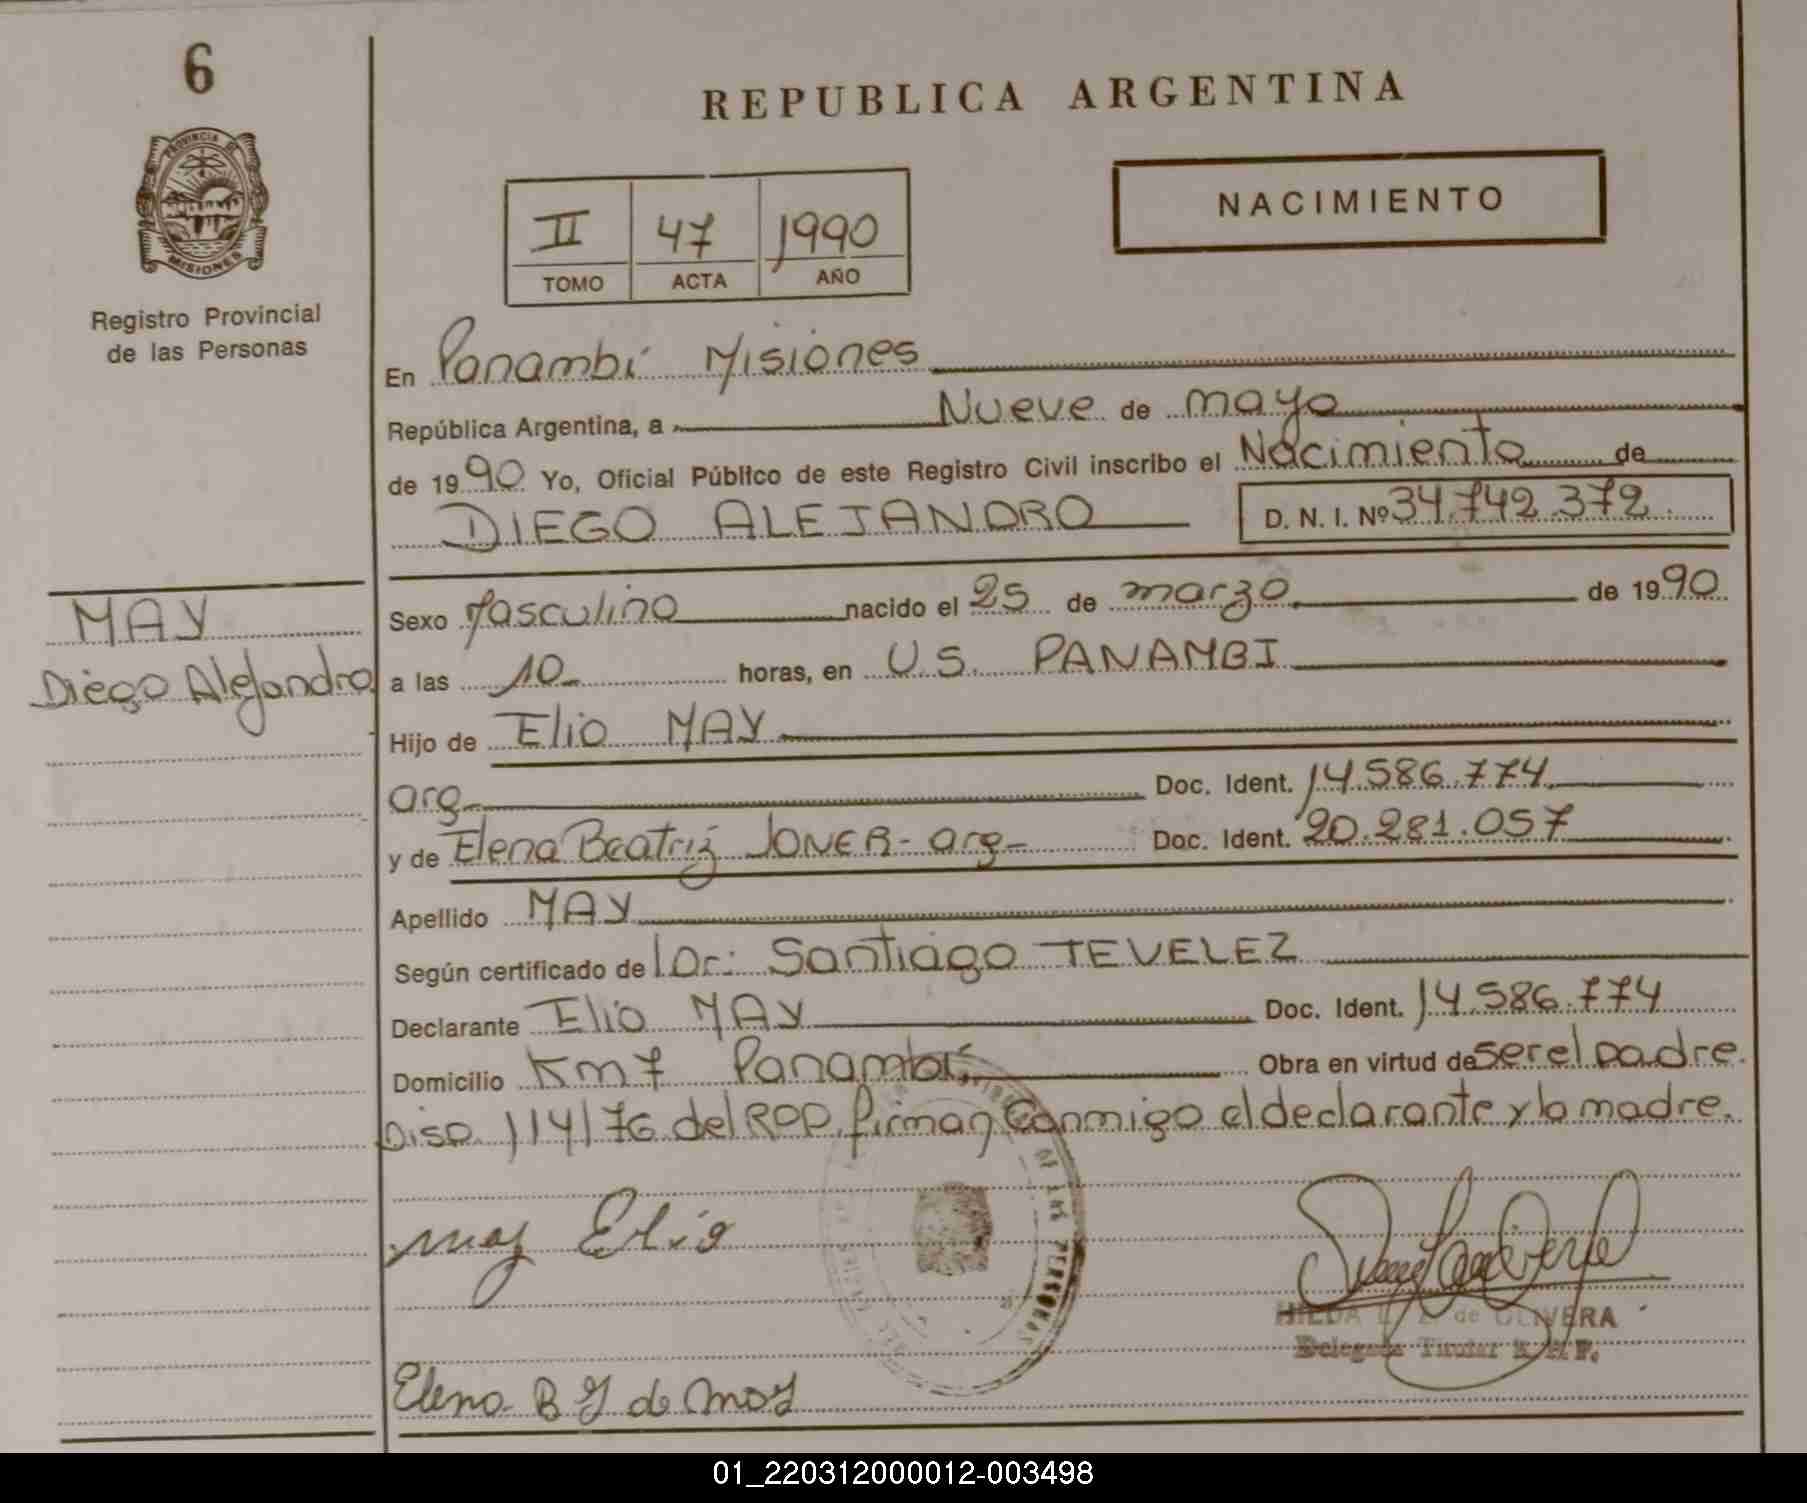 6
PROVINCIA DE
MISIONES
Registro Provincial
de las Personas
REPUBLICA ARGENTINA
II 47 1990
TOMO ACTA AÑO
NACIMIENTO
En Panambí Misiones
República Argentina, a Nueve de mayo
de 1990 Yo, Oficial Público de este Registro Civil inscribo el Nacimiento de
DIEGO ALEJANDRO D. N. I. Nº 34.742.372
MAY
Diego Alejandro
Sexo Masculino nacido el 25 de marzo de 1990
a las 10 horas, en U.S. PANAMBI
Hijo de Elio MAY
arg Doc. Ident. 14.586.774
y de Elena Beatriz JONER - arg - Doc. Ident. 20.281.057
Apellido MAY
Según certificado de Dr: Santiago TEVELEZ
Declarante Elio MAY Doc. Ident. 14.586.774
Domicilio Km 7 Panambí Obra en virtud de ser el padre.
Disp. 114/76 del RPP, firman Conmigo el declarante y la madre.
DE LAS PERSONAS
may Elio
HILDA de OLIVERA
Delegada Titular R.P.P.
Elena B J de May
01_220312000012-003498